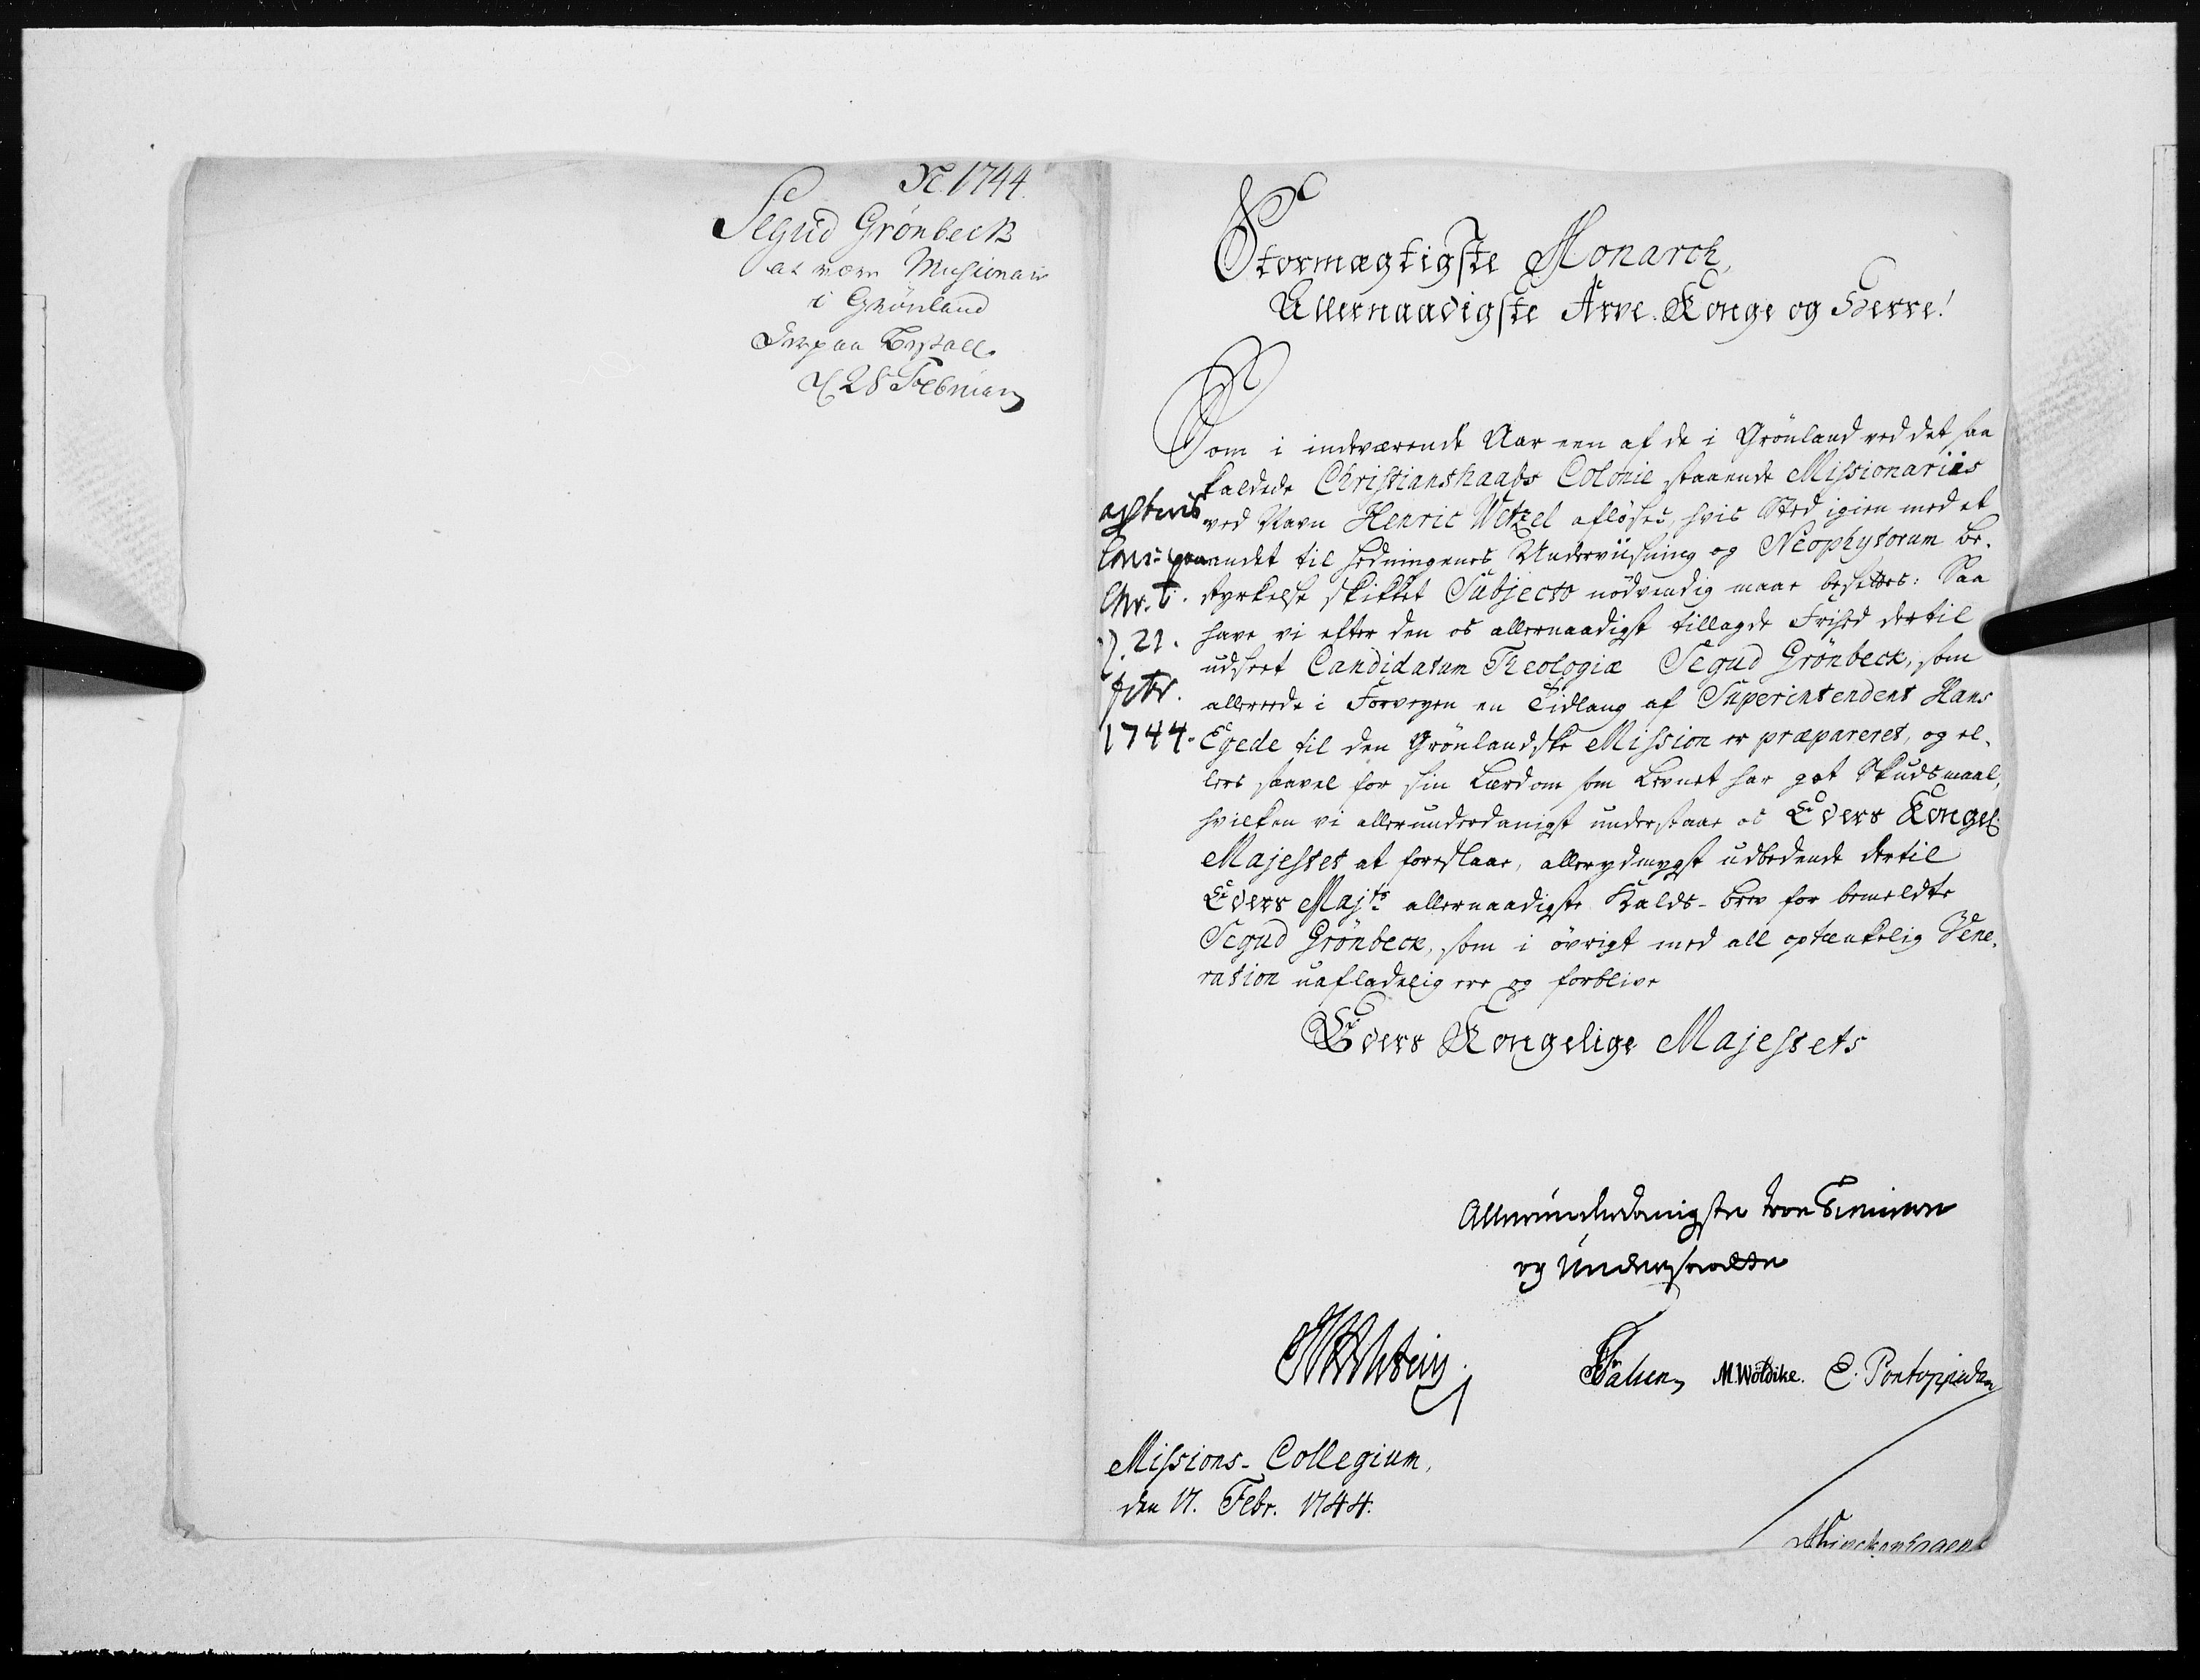 1744.
Segud Grönbeck
at være Missionair
i Grönland
Derpaa Bestall.
d 28 Februarij
Stormægtigste Monarch,
Allernaadigste Arve-Konge og Herre!
Som i indeværende Aar een af de i Grönland ved det saa
kaldede Christianshaabs Colonie staaende Missionariis
ved Navn Henric Wetzel aflöses, hvis Sted igien med et
andet til Hedningenes Underviisning og Neophytorum be-
styrkelse skikket Subjecto nödvendig maae besettes: Saa
have vi efter den os allernaadigst tillagde Frihed dertil
udseet Candidatum Theologiæ Segud Grönbeck, som
allereede i Forveyen en Tidlang af Superintendent Hans
Egede til den Grönlandske Mission er præpareret, og el-
lers saavel for sin Lærdom som Levnet har got Skudsmaal,
hvilken vi allerunderdanigst understaae os Eders Kongel.
Majestet at foreslaae, allerydmygst udbedende dertil
Eders Majts allernaadigste Kalds-brev for bemeldte
Segud Grönbeck, som i övrigt med all optænkelig Vene-
ration uafladelig ere og forblive
Eders Kongelige Majestets
Allerunderdanigste troe Tienere
og Undersaatter
Holstein
M. Wöldike. E. Pontoppidan
Missions-Collegium,
den 17. Febr. 1744.
Chr.
d. 21.
febr.
1744.